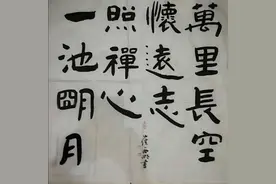 萬里長空
懷遠志
照禪心
一池朙月